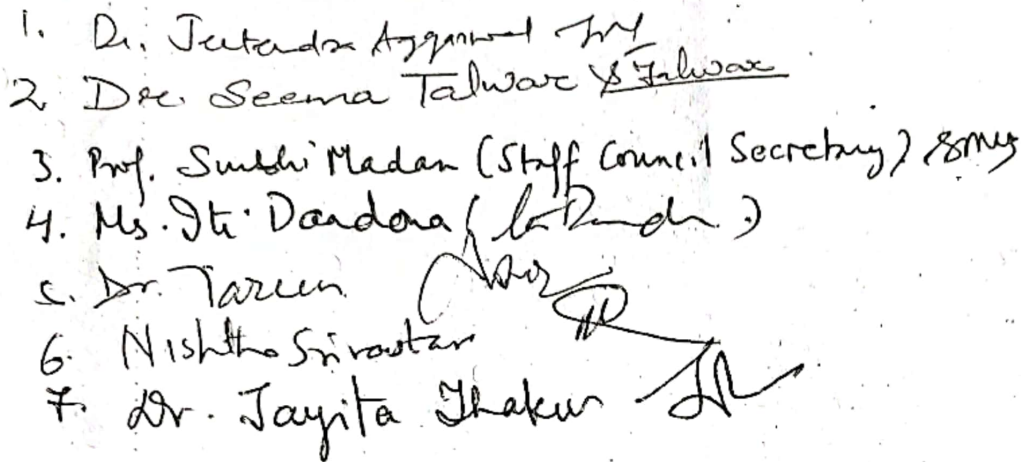 1. Dr. Jeetendra Aggarwal
2 Dr. Seema Talwar STalwar
3. Prof. Surbhi Madan (Staff Council Secretary)
4. Ms. Iti Dandona
5. Dr. Tazeen
6. Nishtha Srivastava
7. Dr. Jayita Thakur